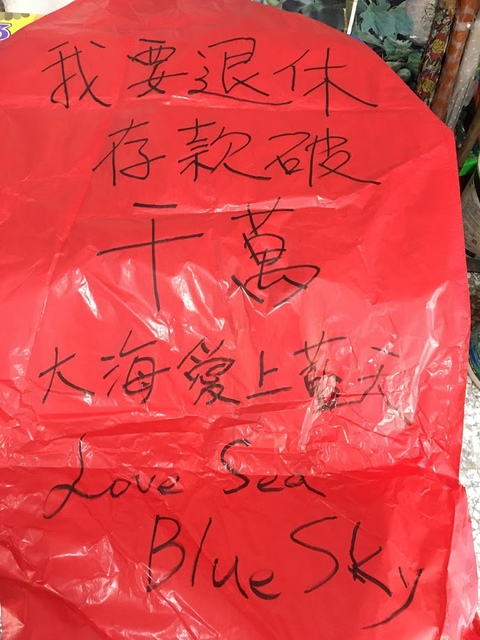 我要退休
存款破
千萬
大海愛上藍天
Love Sea
Blue Sky